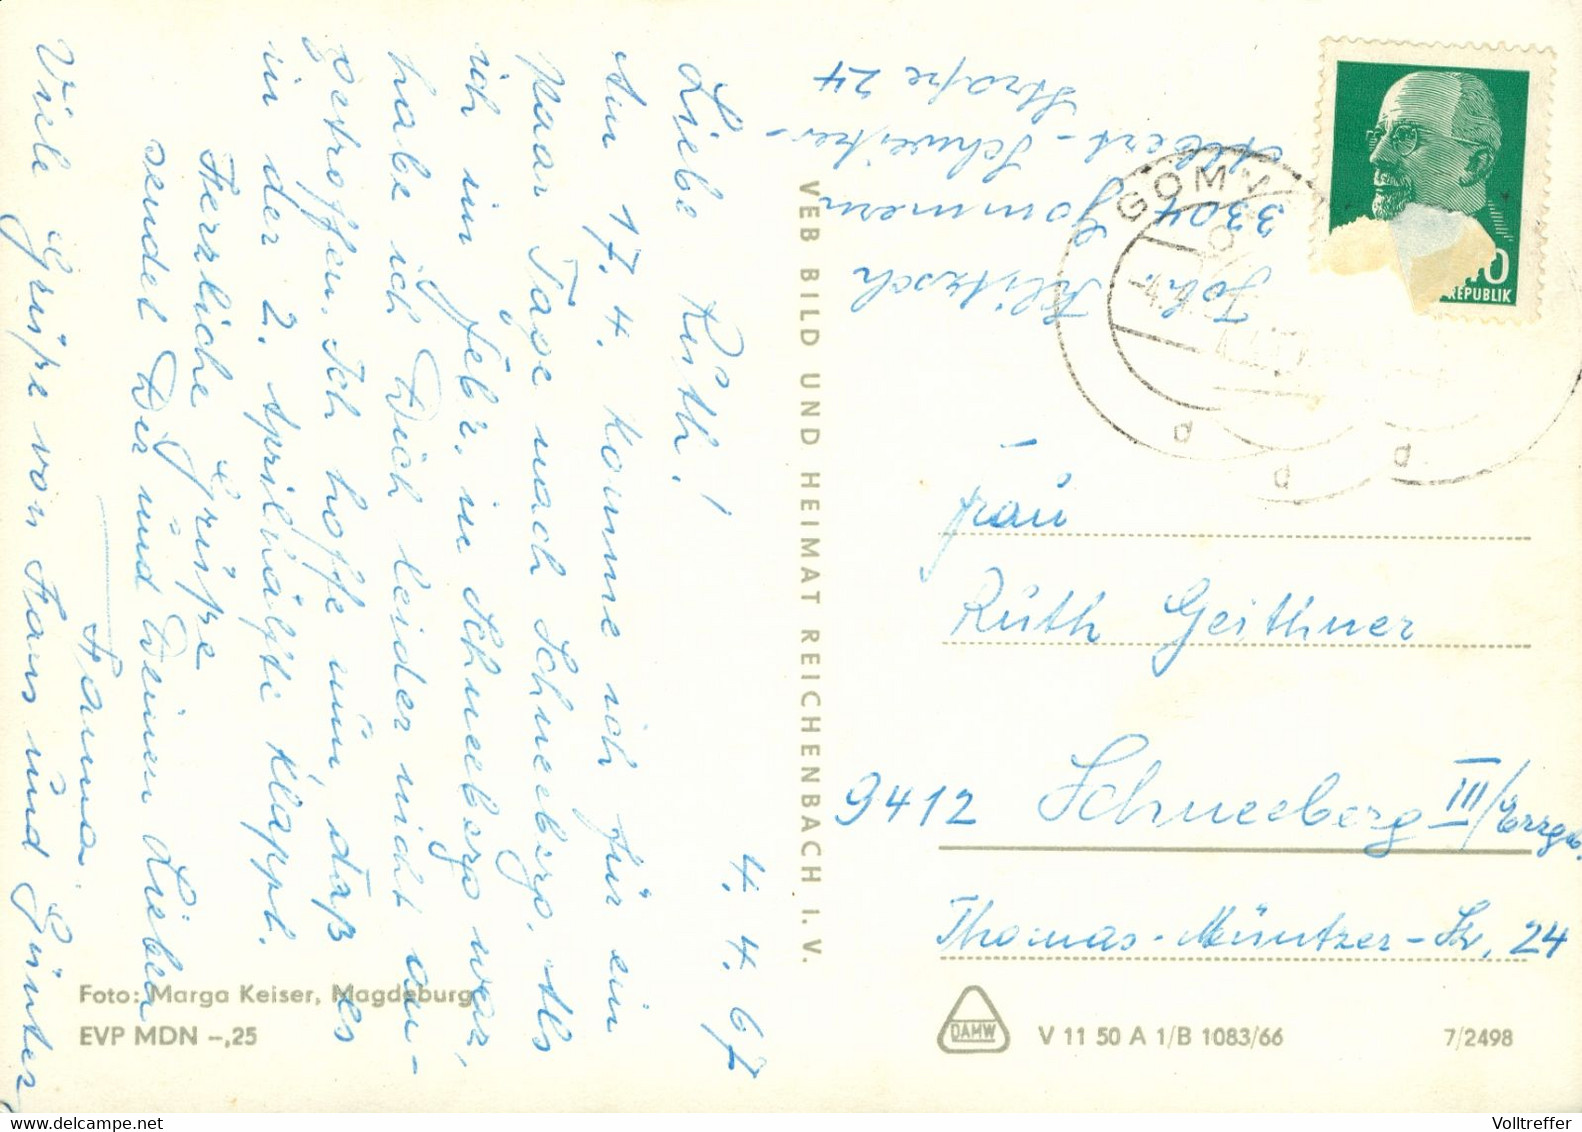 4. 4. 67
Liebe Ruth!
Am 17. 4. komme ich für ein
paar Tage nach Schneeberg. Als
ich im Febr. in Schneeberg war,
habe ich Dich leider nicht an-
getroffen. Ich hoffe nun, daß es
in der 2. Aprilhälfte klappt.
Herrliche Grüße
sendet Dir und Deinen Lieben
Hanna.
Viele Grüße von Hans und Günter
Joh.
3304 Gommern
Albert-Schweitzer-
Straße 24
GOMM
10
REPUBLIK
d
d
d
VEB BILD UND HEIMAT REICHENBACH I. V.
Frau
Ruth Geithner
9412 Schneeberg III/Erzgb.
Thomas-Müntzer-Str. 24
Foto: Marga Keiser, Magdeburg
EVP MDN -,25
DAMW
V 11 50 A 1/B 1083/66
7/2498
Volltreffer